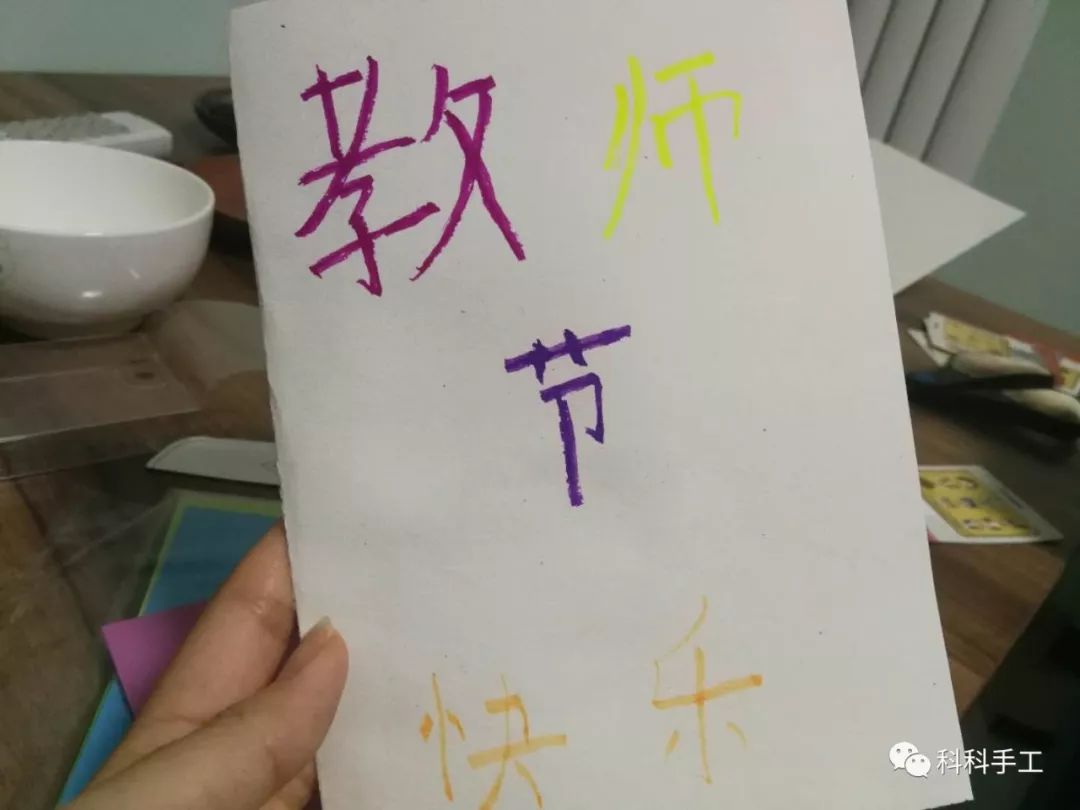 教师
节
快乐
科科手工